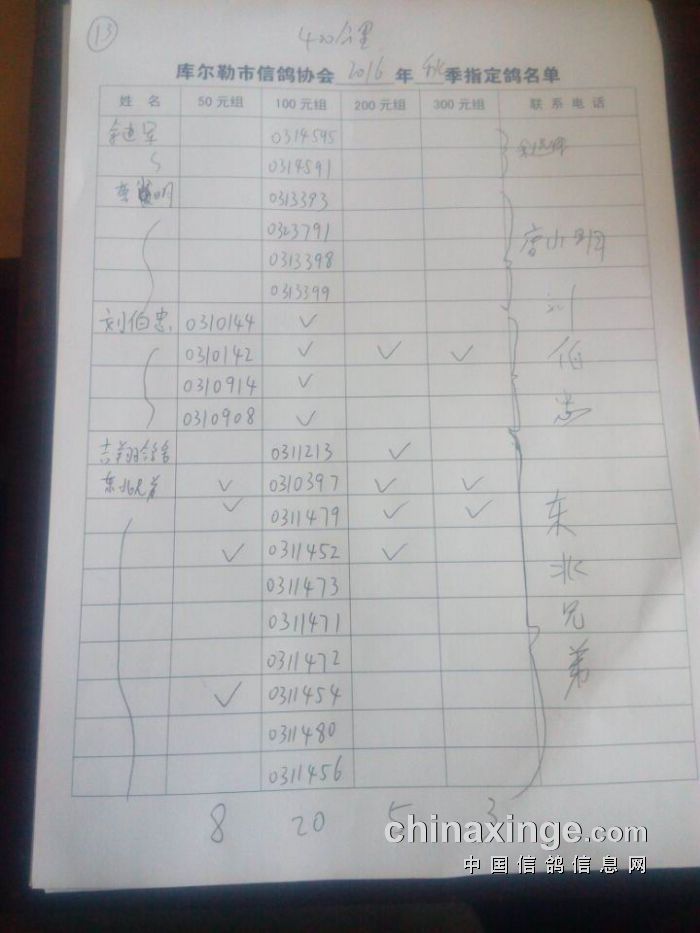 13
400公里
库尔勒市信鸽协会 2016 年 秋 季指定鸽名单
姓 名 50元组 100元组 200元组 300元组 联系电话
0314595
0314591
0313393
0323791
0313398
0313399
刘伯忠 0310144 ✓ 刘伯忠
0310142 ✓ ✓ ✓
0310914 ✓
0310908 ✓
吉翔鸽舍 0311213 ✓
东北兄弟 ✓ 0310397 ✓ ✓ 东北兄弟
✓ 0311479 ✓ ✓
✓ 0311452 ✓
0311473
0311471
0311472
✓ 0311454
0311480
0311456
8 20 5 3
chinaxinge.com
中国信鸽信息网